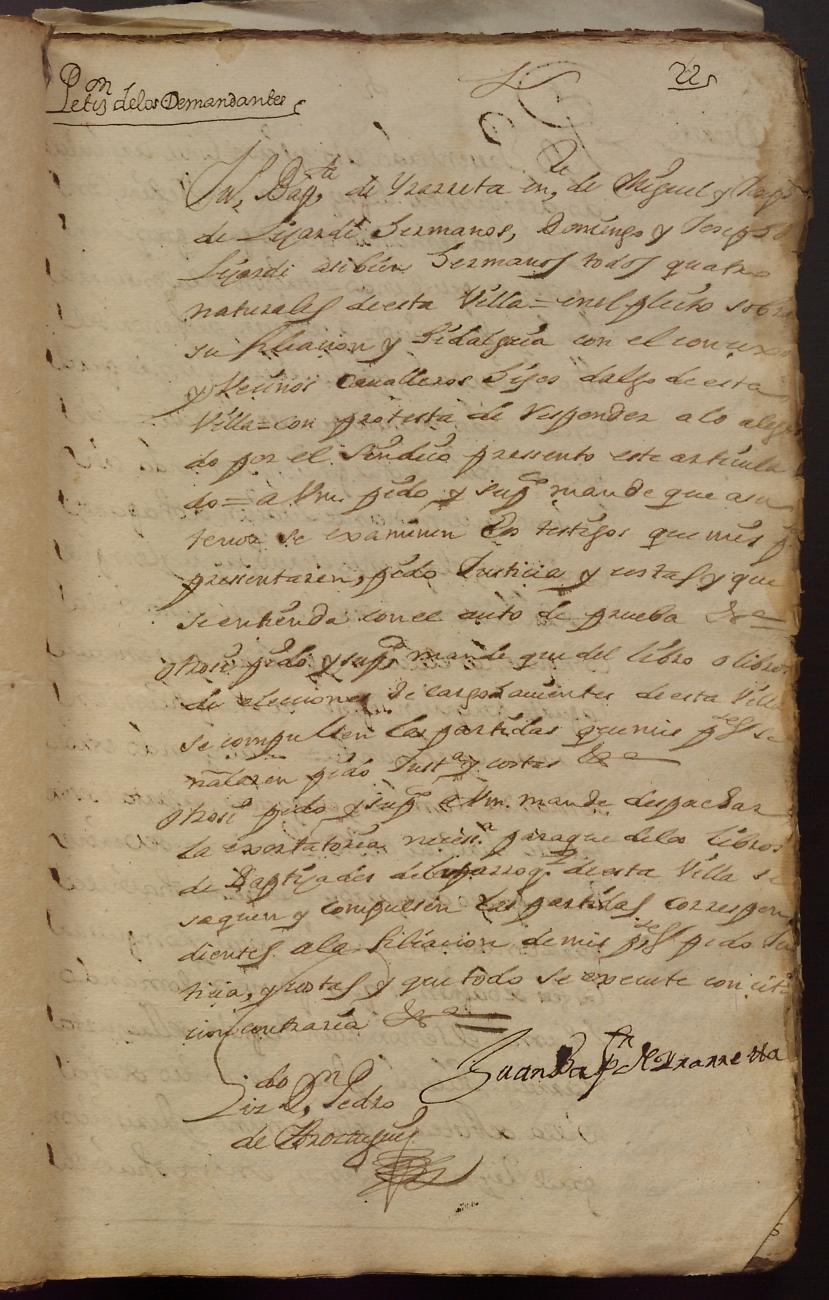 Petiz.on de los Demandantes
22
Ju. Bap.ta de Yrarreta en n.e de Miguel y
de Lijardi hermanos, Domingo y Joseph de
Lijardi asibien hermanos todos quatro
naturales de esta Villa = en el pleito sobre
su filiacion y hidalguia con el concexo
y Vecinos Cavalleros hijos dalgo de esta
Villa = con protesta de Responder a lo alega
do por el Sindico presento este articula
do = a Vm. pido y sup.co mande que a su
tenor se examinen los testigos que mis p.
presentaren, pido Justicia y costas y que
se entienda con el auto de prueba &a
otrosi pido y sup.co mande que del libro o libros
de elecciones de cargohavientes de esta Villa
se compulsen las partidas que mis p.tes se
ñalaren pido Just.a y costas &a
otrosi pido y sup.co a Vm. mande despachar
la exortatoria neces.a para que de los libros
de Baptizados de la parroq.l de esta Villa se
saquen y compulsen las partidas correspon
dientes a la filiacion de mis p.tes pido Jus
ticia, y costas y que todo se execute con cita
cion contraria &a
Juan Bap.ta de Yrarreta
Liz.do D.n Pedro
de